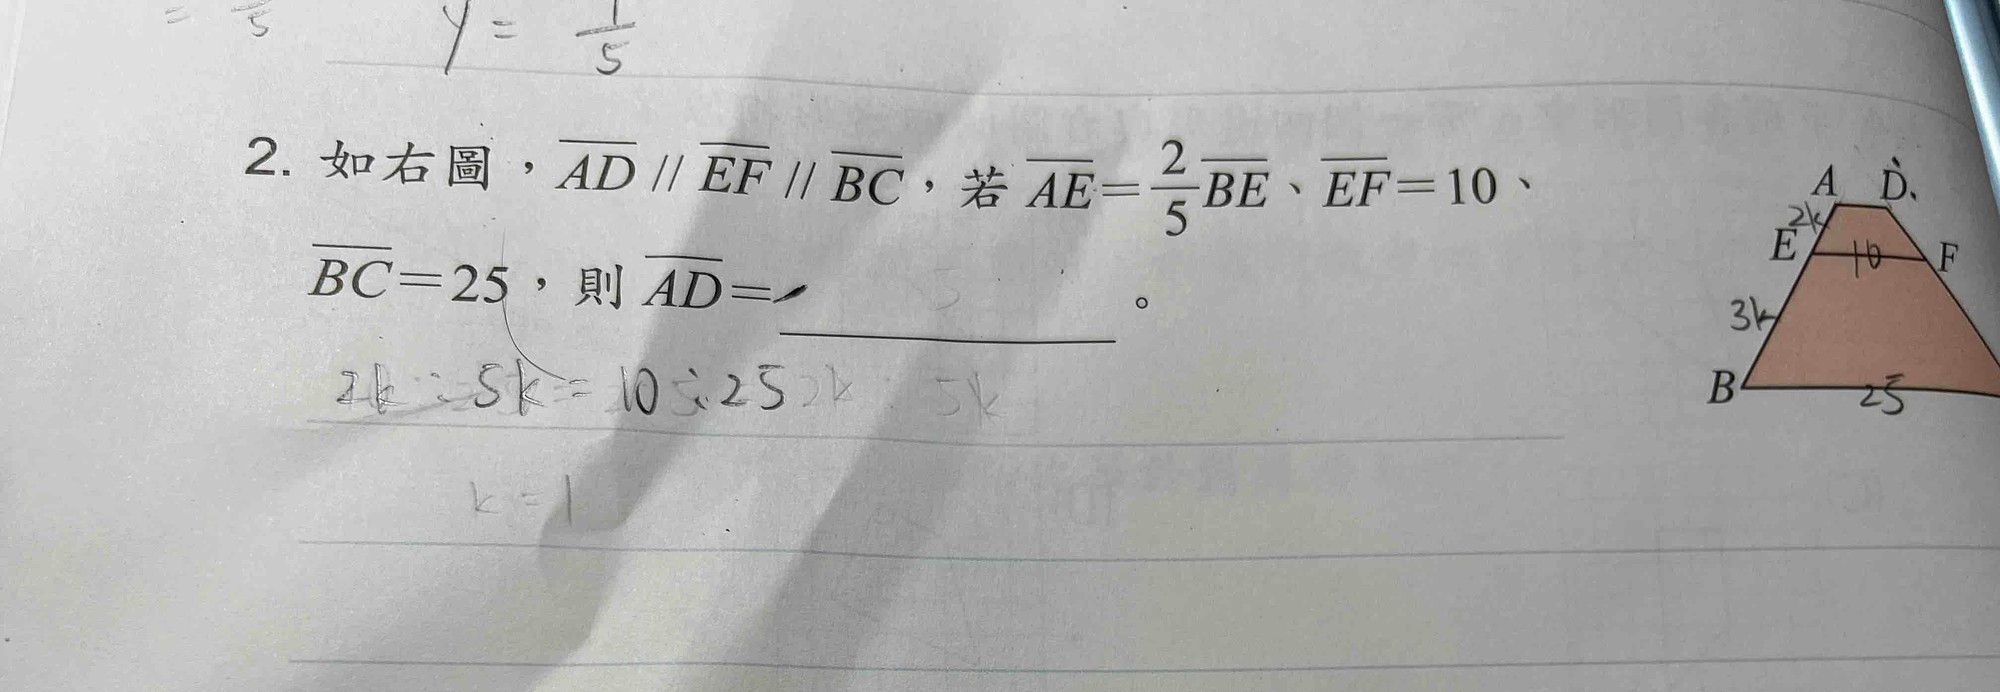 y = 1/5
2. 如右圖，AD // EF // BC，若 AE=2/5 BE、EF=10、
BC=25，則 AD=＿＿＿＿。
2k : 5k = 10 : 25
k = 1
A D
2k
E 10 F
3k
B 25